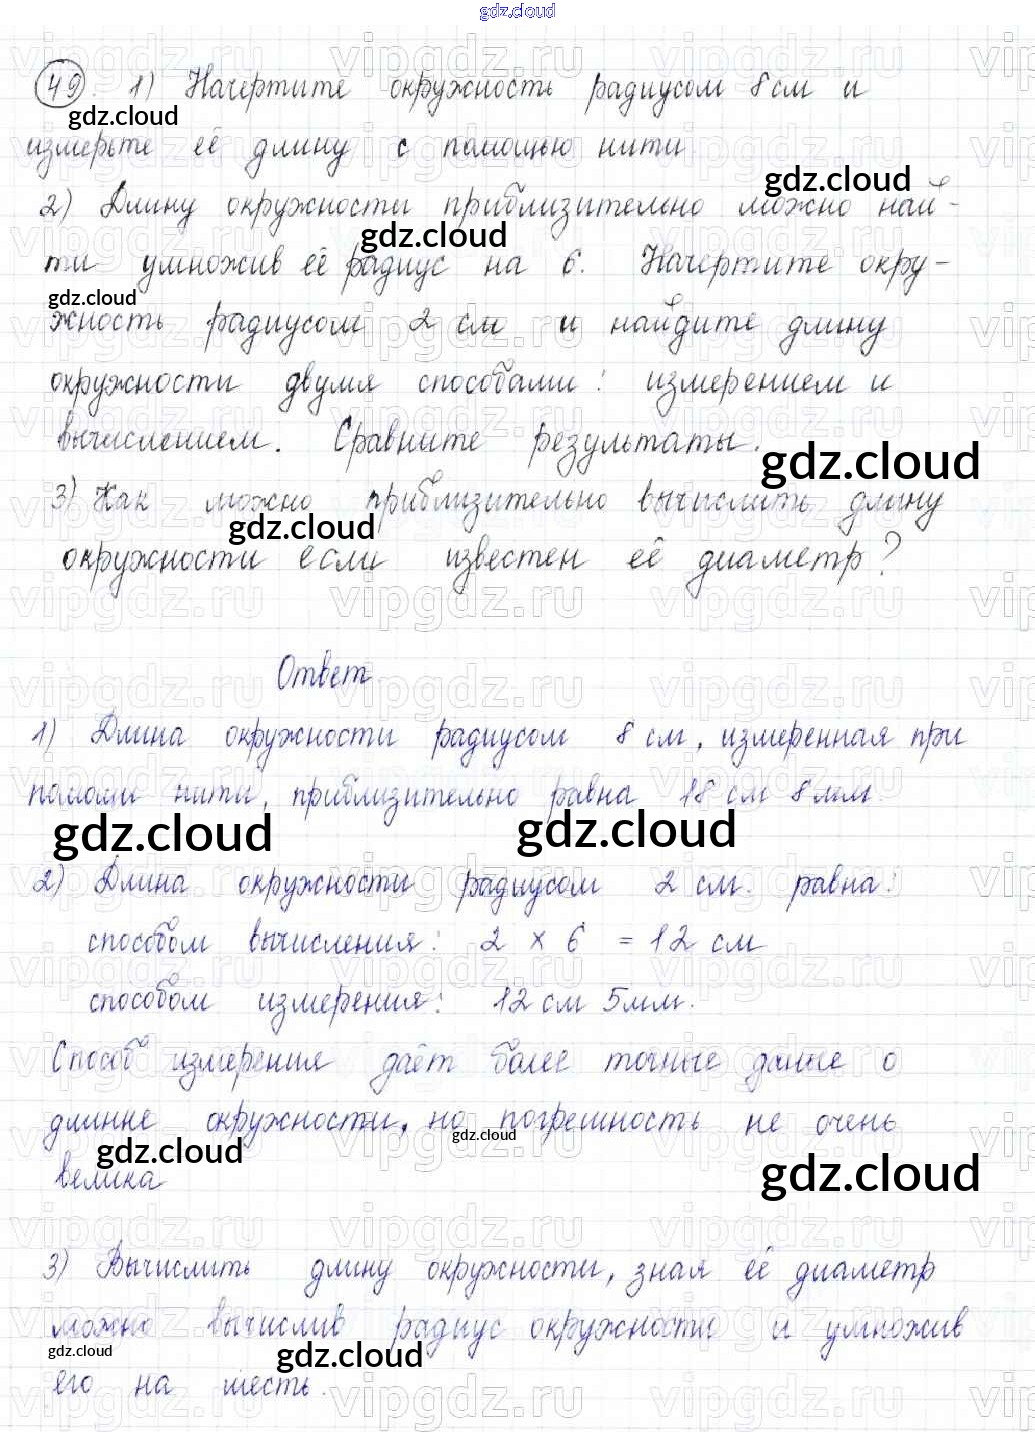 gdz.cloud
49. 1) Начертите окружность радиусом 8 см и
gdz.cloud
измерьте её длину с помощью нити
gdz.cloud
2) Длину окружности приблизительно можно най-
gdz.cloud
ти умножив её радиус на 6. Начертите окру-
gdz.cloud
жность радиусом 2 см и найдите длину
окружности двумя способами: измерением и
вычислением. Сравните результаты.
gdz.cloud
3) Как можно приблизительно вычислить длину
gdz.cloud
окружности если известен её диаметр?
Ответ
1) Длина окружности радиусом 8 см, измеренная при
помощи нити, приблизительно равна 18 см 8 мм.
gdz.cloud gdz.cloud
2) Длина окружности радиусом 2 см. равна:
способом вычисления: 2 × 6 = 12 см
способом измерения: 12 см 5 мм.
Способ измерения даёт более точные даные о
длинне окружности, но погрешность не очень
gdz.cloud gdz.cloud gdz.cloud
велика
3) Вычислить длину окружности, зная её диаметр
можно вычислив радиус окружности и умножив
gdz.cloud gdz.cloud
его на шесть.
vipgdz.ru